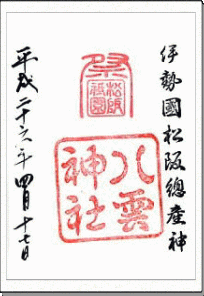 伊勢國松阪總産神
祭
松阪
祇園
八雲
神社
平成二十六年四月十七日